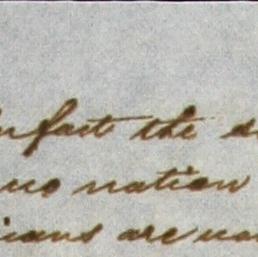 In fact the
no nation
icans are